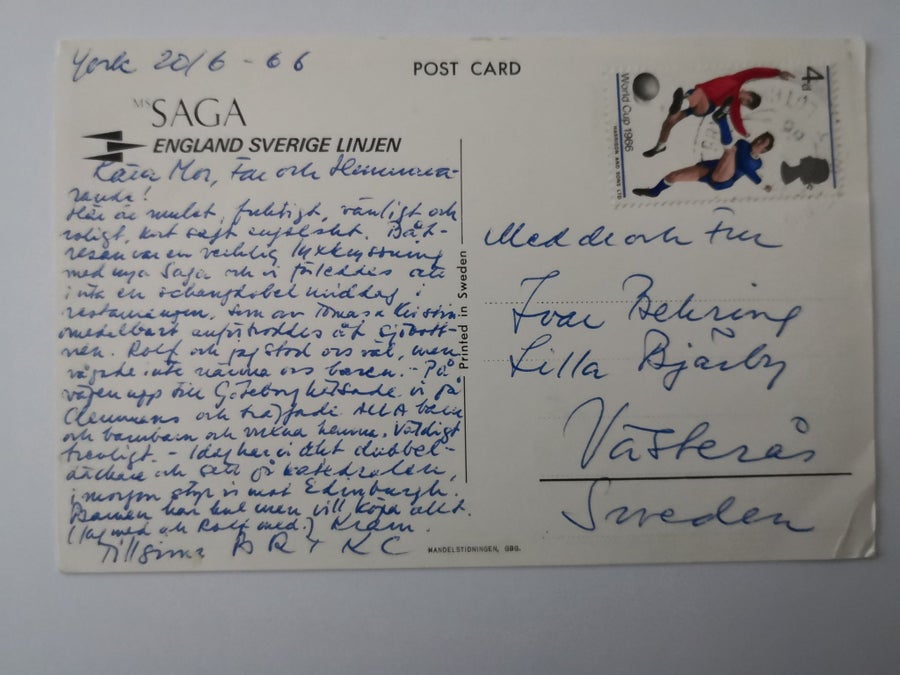 York 20/6 - 66
POST CARD
MS SAGA
ENGLAND SVERIGE LINJEN
Kära Mor, Far och Hemmava-
rande!
Här är mulet, fuktigt, vänligt och
roligt, kort sagt engelskt. Båt-
resan var en verklig lyxkryssning
med nya Saga och vi förleddes att
inta en schangdobel middag i
restaurangen, som av Tomas o Kristin
omedelbart anförtroddes åt Sjöbott-
nen. Rolf och jag stod oss väl, men
vågade inte nämna oss baren. - På
vägen upp till Göteborg hälsade vi på
Clemmens och träffade ALLA barn
och barnbarn och vuxna hemma. Väldigt
trevligt. - Idag har vi åkt dubbel-
däckare och sett på katedralen,
i morgon styr vi mot Edinburgh.
Barnen har kul men vill köpa allt.
(Jag med och Rolf med.) Kram.
Tillgivna BR + KC
Printed in Sweden
HANDELSTIDNINGEN, GBG.
4d
World Cup 1966
HARRISON AND SONS LTD
Med de och Fru
Ivar Behring
Lilla Bjärby
Västerås
Sweden